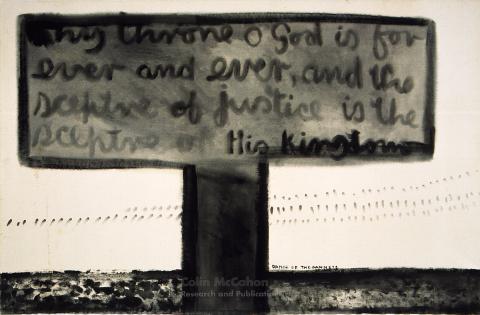 Thy throne O God is for
ever and ever, and the
sceptre of justice is the
sceptre of His kingdom
DANCE OF THE GANNETS
Colin McCahon
Research and Publication